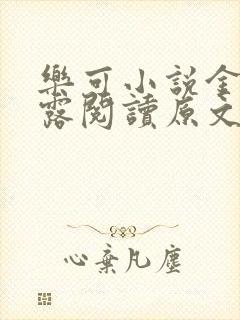 樂可小說金
露閱讀原文
心棄凡塵